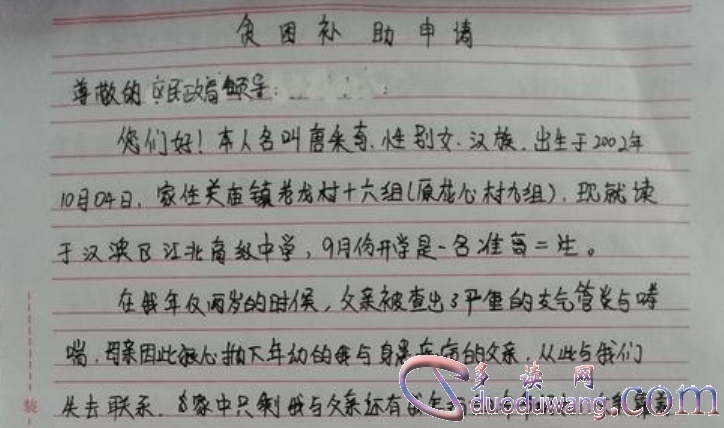 贫困补助申请
尊敬的区民政局领导:
您们好!本人名叫唐采奇.性别女.汉族.出生于2002年
10月04日.家住关庙镇老龙村十六组(原花心村九组).现就读
于汉滨区江北高级中学,9月份开学是一名准高二生。
在我年仅两岁的时候,父亲被查出了严重的支气管炎与哮
喘.母亲因此狠心抛下年幼的我与身患疾病的父亲.从此与我们
失去联系.家中只剩我与父亲还有
多读网
duoduwang.com
装